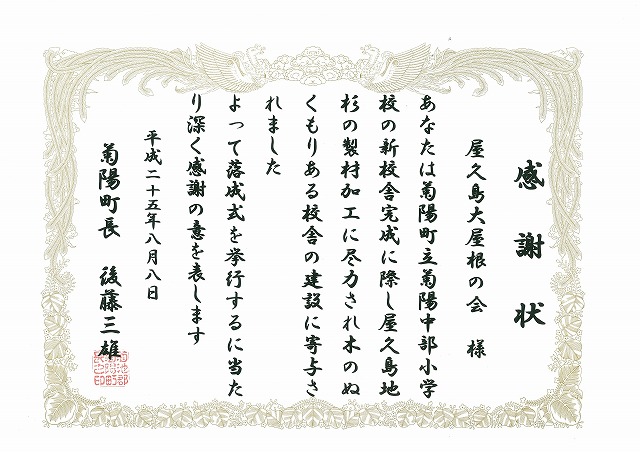 感謝状
屋久島大屋根の会 様
あなたは菊陽町立菊陽中部小学
校の新校舎完成に際し屋久島地
杉の製材加工に尽力され木のぬ
くもりある校舎の建設に寄与さ
れました
よって落成式を挙行するに当た
り深く感謝の意を表します
平成二十五年八月八日
菊陽町長 後藤三雄